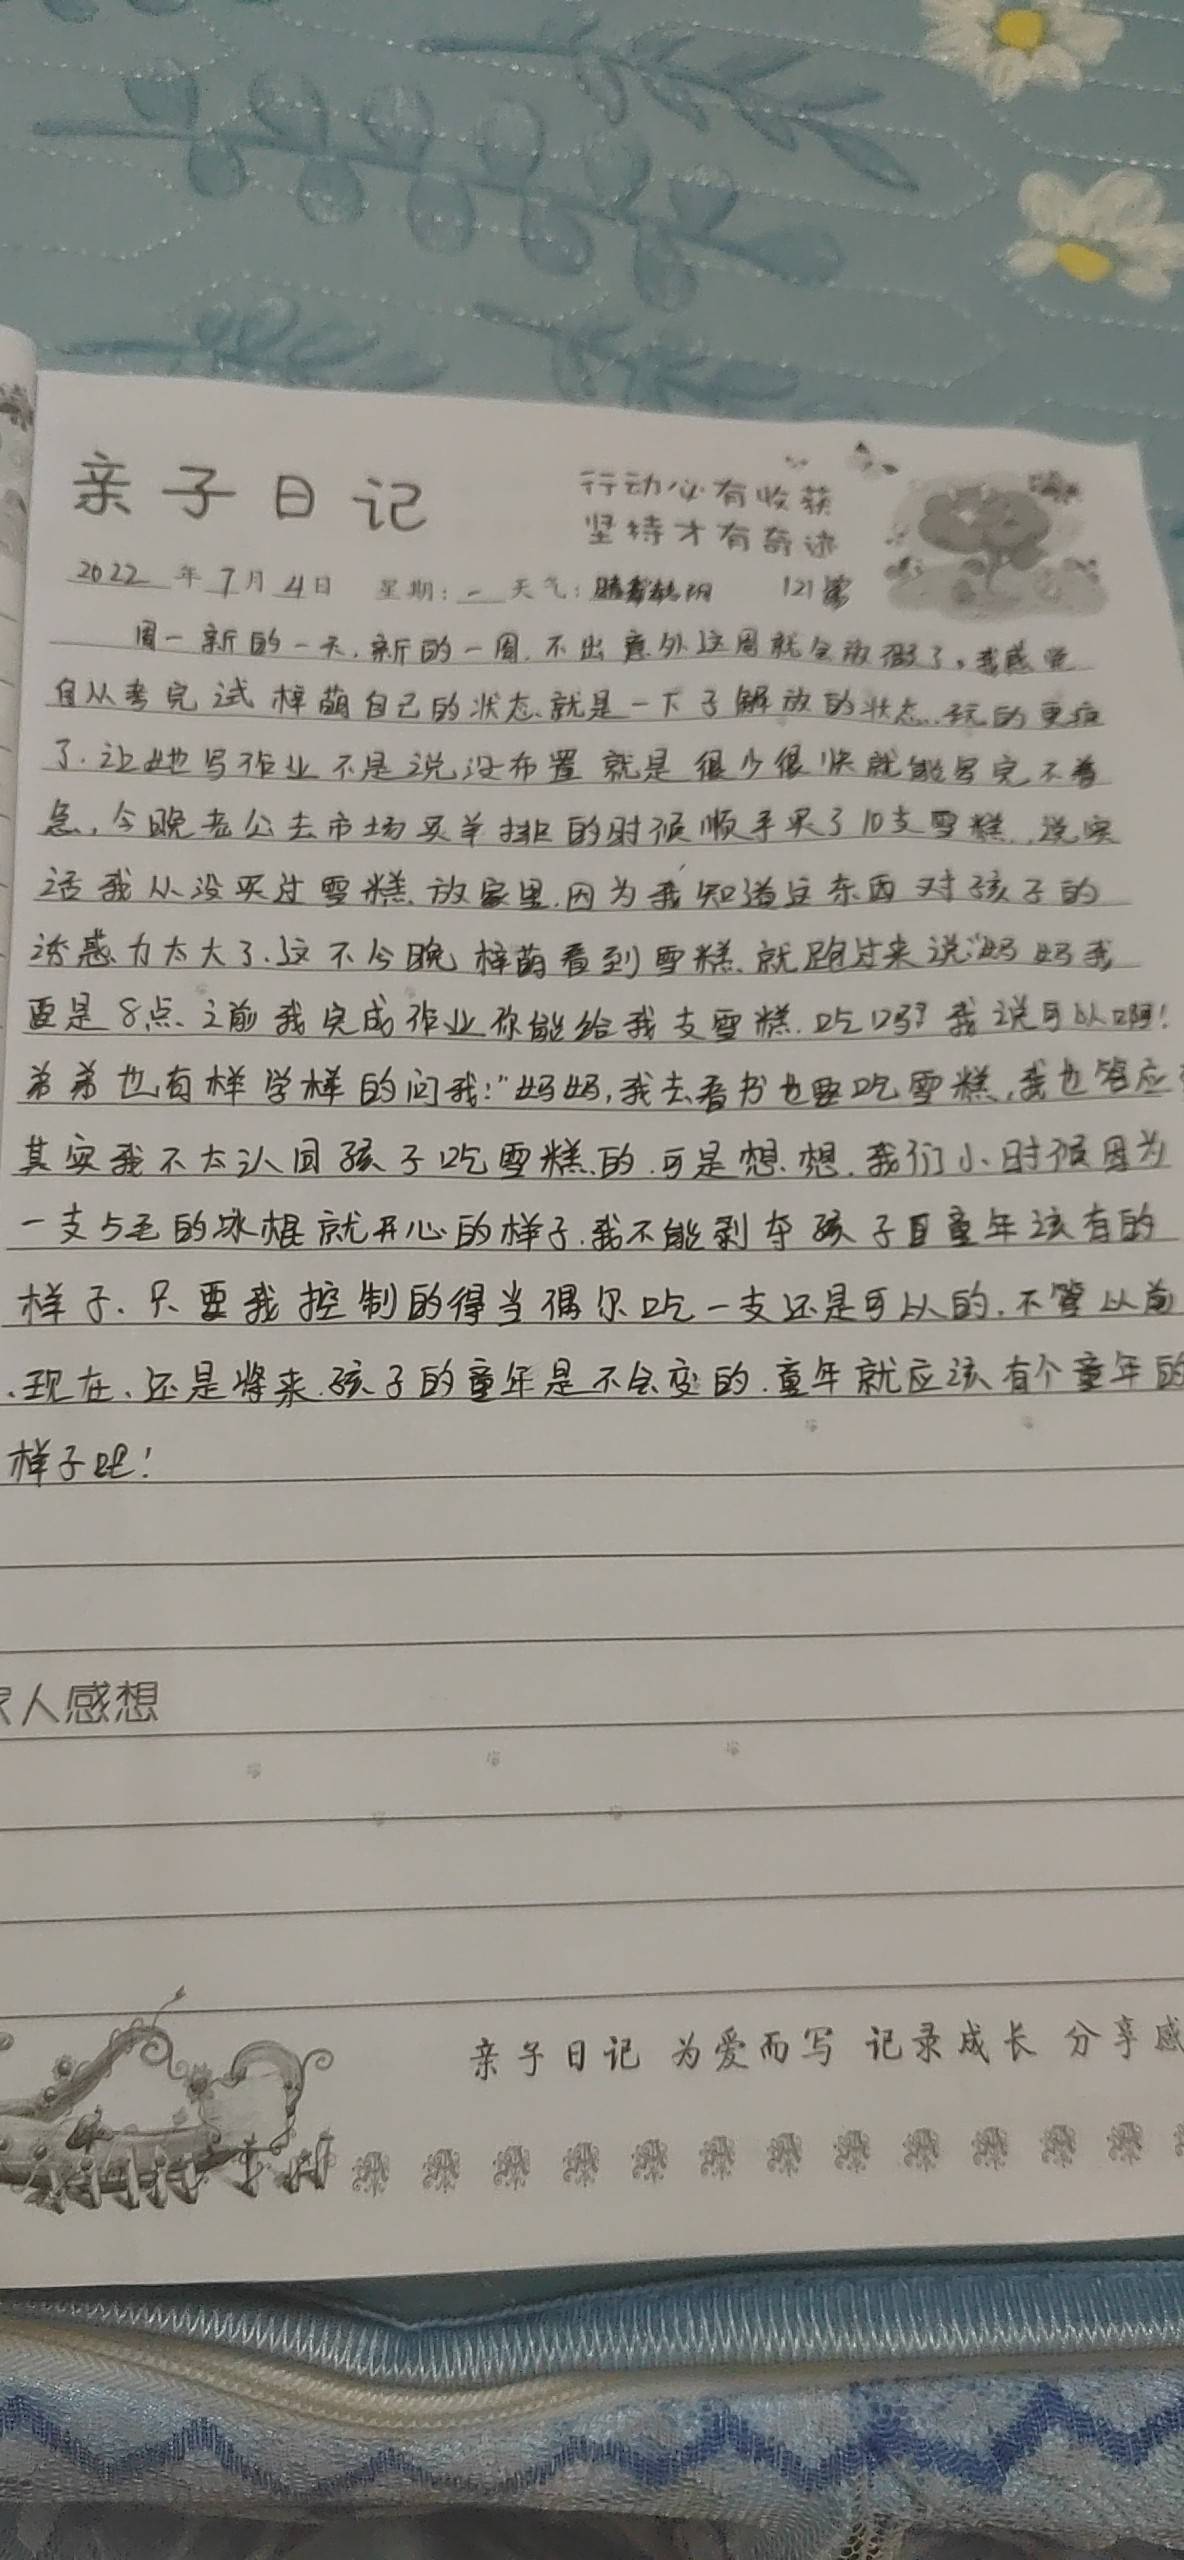 亲子日记
行动必有收获
坚持才有奇迹
2022年7月4日 星期:一 天气: 阴 121篇
周一新的一天,新的一周,不出意外这周就会放假了。我感觉
自从考完试梓萌自己的状态、就是一下子解放的状态,玩的更疯
了.让她写作业不是说没布置就是很少很快就能写完不着
急,今晚老公去市场买羊排的时候顺手买了10支雪糕,说实
话我从没买过雪糕放家里,因为我知道这东西对孩子的
诱惑力太大了.这不今晚梓萌看到雪糕就跑过来说“妈妈我
要是8点之前我完成作业你能给我支雪糕吃吗?我说可以啊!
弟弟也有样学样的问我:“妈妈,我去看书也要吃雪糕,我也答应
其实我不太认同孩子吃雪糕的.可是想想,我们小时候因为
一支5毛的冰棍就开心的样子.我不能剥夺孩子童年该有的
样子、只要我控制的得当偶尔吃一支还是可以的.不管以前
、现在、还是将来.孩子的童年是不会变的.童年就应该有个童年的
样子吧!
家人感想
亲子日记 为爱而写 记录成长 分享感